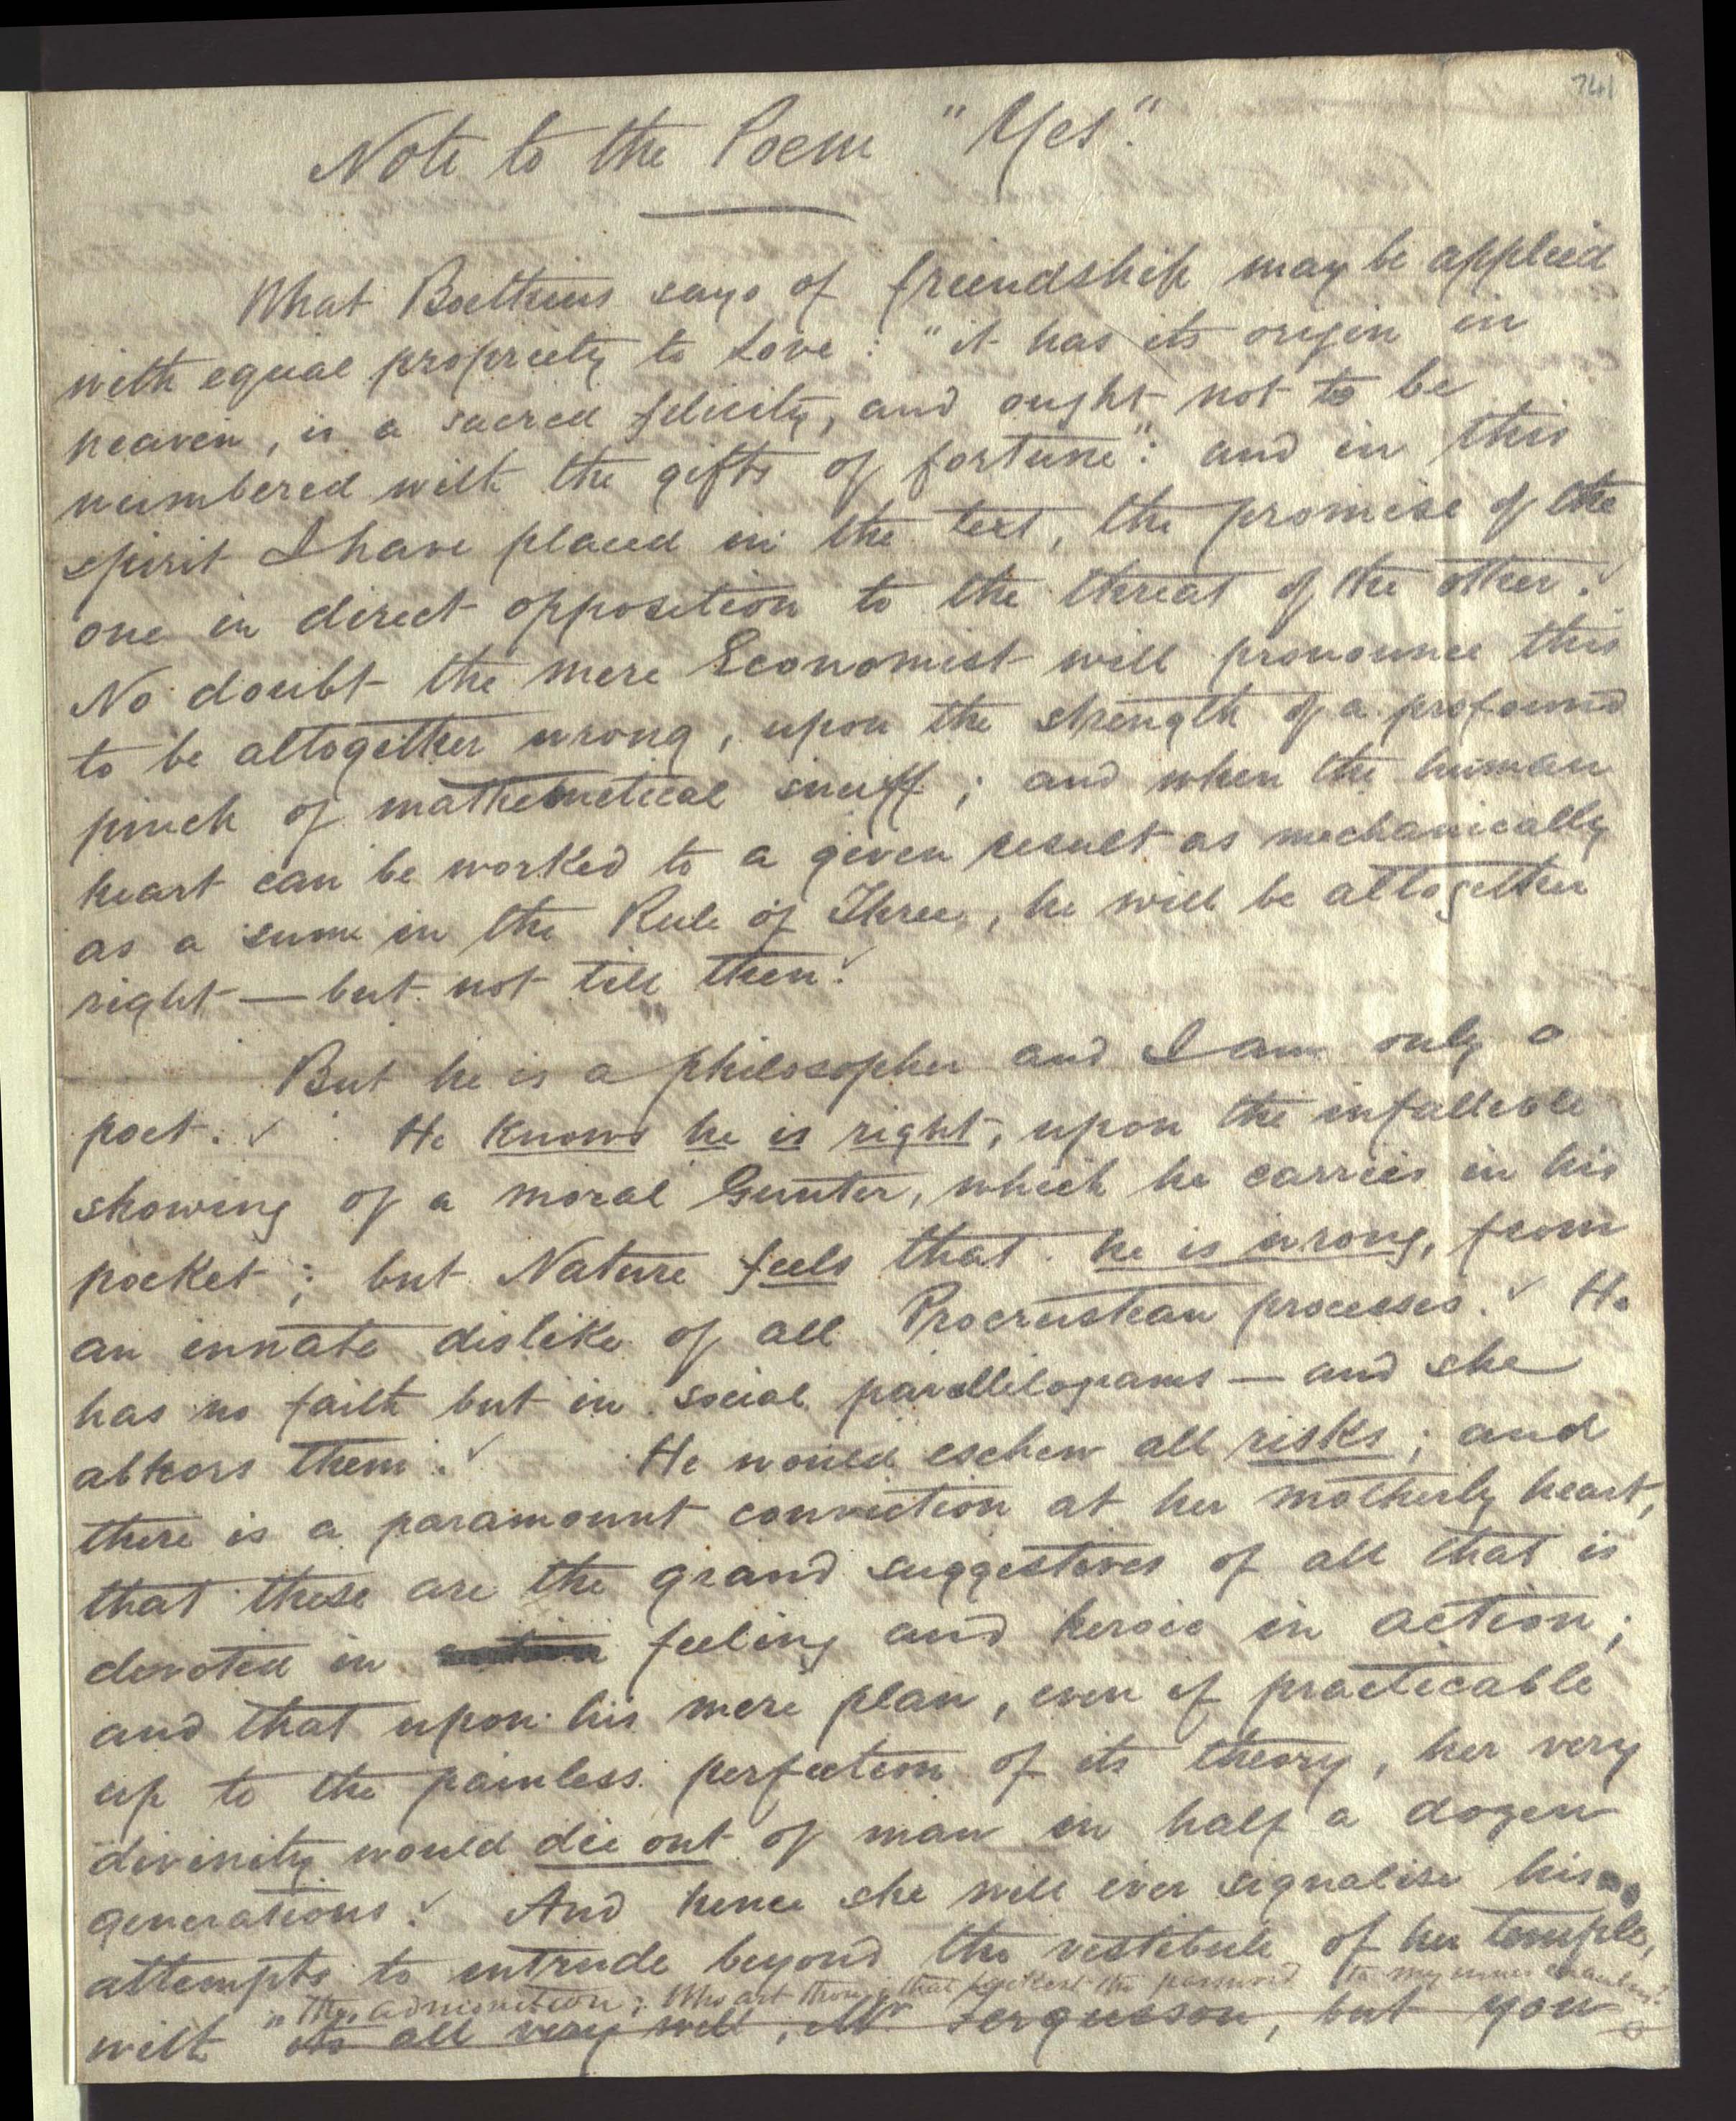 741
Note to the Poem "Yes".
What Boethius says of friendship may be applied
with equal propriety to Love: "it has its origin in
heaven, is a sacred felicity, and ought not to be
numbered with the gifts of fortune": and in this
spirit I have placed in the text, the promise of the
one in direct opposition to the threat of the other.
No doubt the mere Economist will pronounce this
to be altogether wrong, upon the strength of a profound
pinch of mathemetical snuff; and when the human
heart can be worked to a given result as mechanically
as a sum in the Rule of Three, he will be altogether
right — but not till then.
But he is a philosopher and I am only a
poet. He knows he is right, upon the infallible
showing of a moral Gunter, which he carries in his
pocket; but Nature feels that he is wrong, from
an innate dislike of all Procrustean processes. He
has no faith but in social parallilograms — and she
abhors them. He would eschew all risks; and
there is a paramount conviction at her motherly heart,
that these are the grand suggestives of all that is
devoted in action feeling and heroic in action;
and that upon his mere plan, even if practicable
up to the painless perfection of its theory, her very
divinity would die out of man in half a dozen
generations. And hence she will ever signalise his
attempts to intrude beyond the vestibule of her temple,
admonition: Who art thou, that the password to my inner
with its all very well, Mr Fergusson, but you